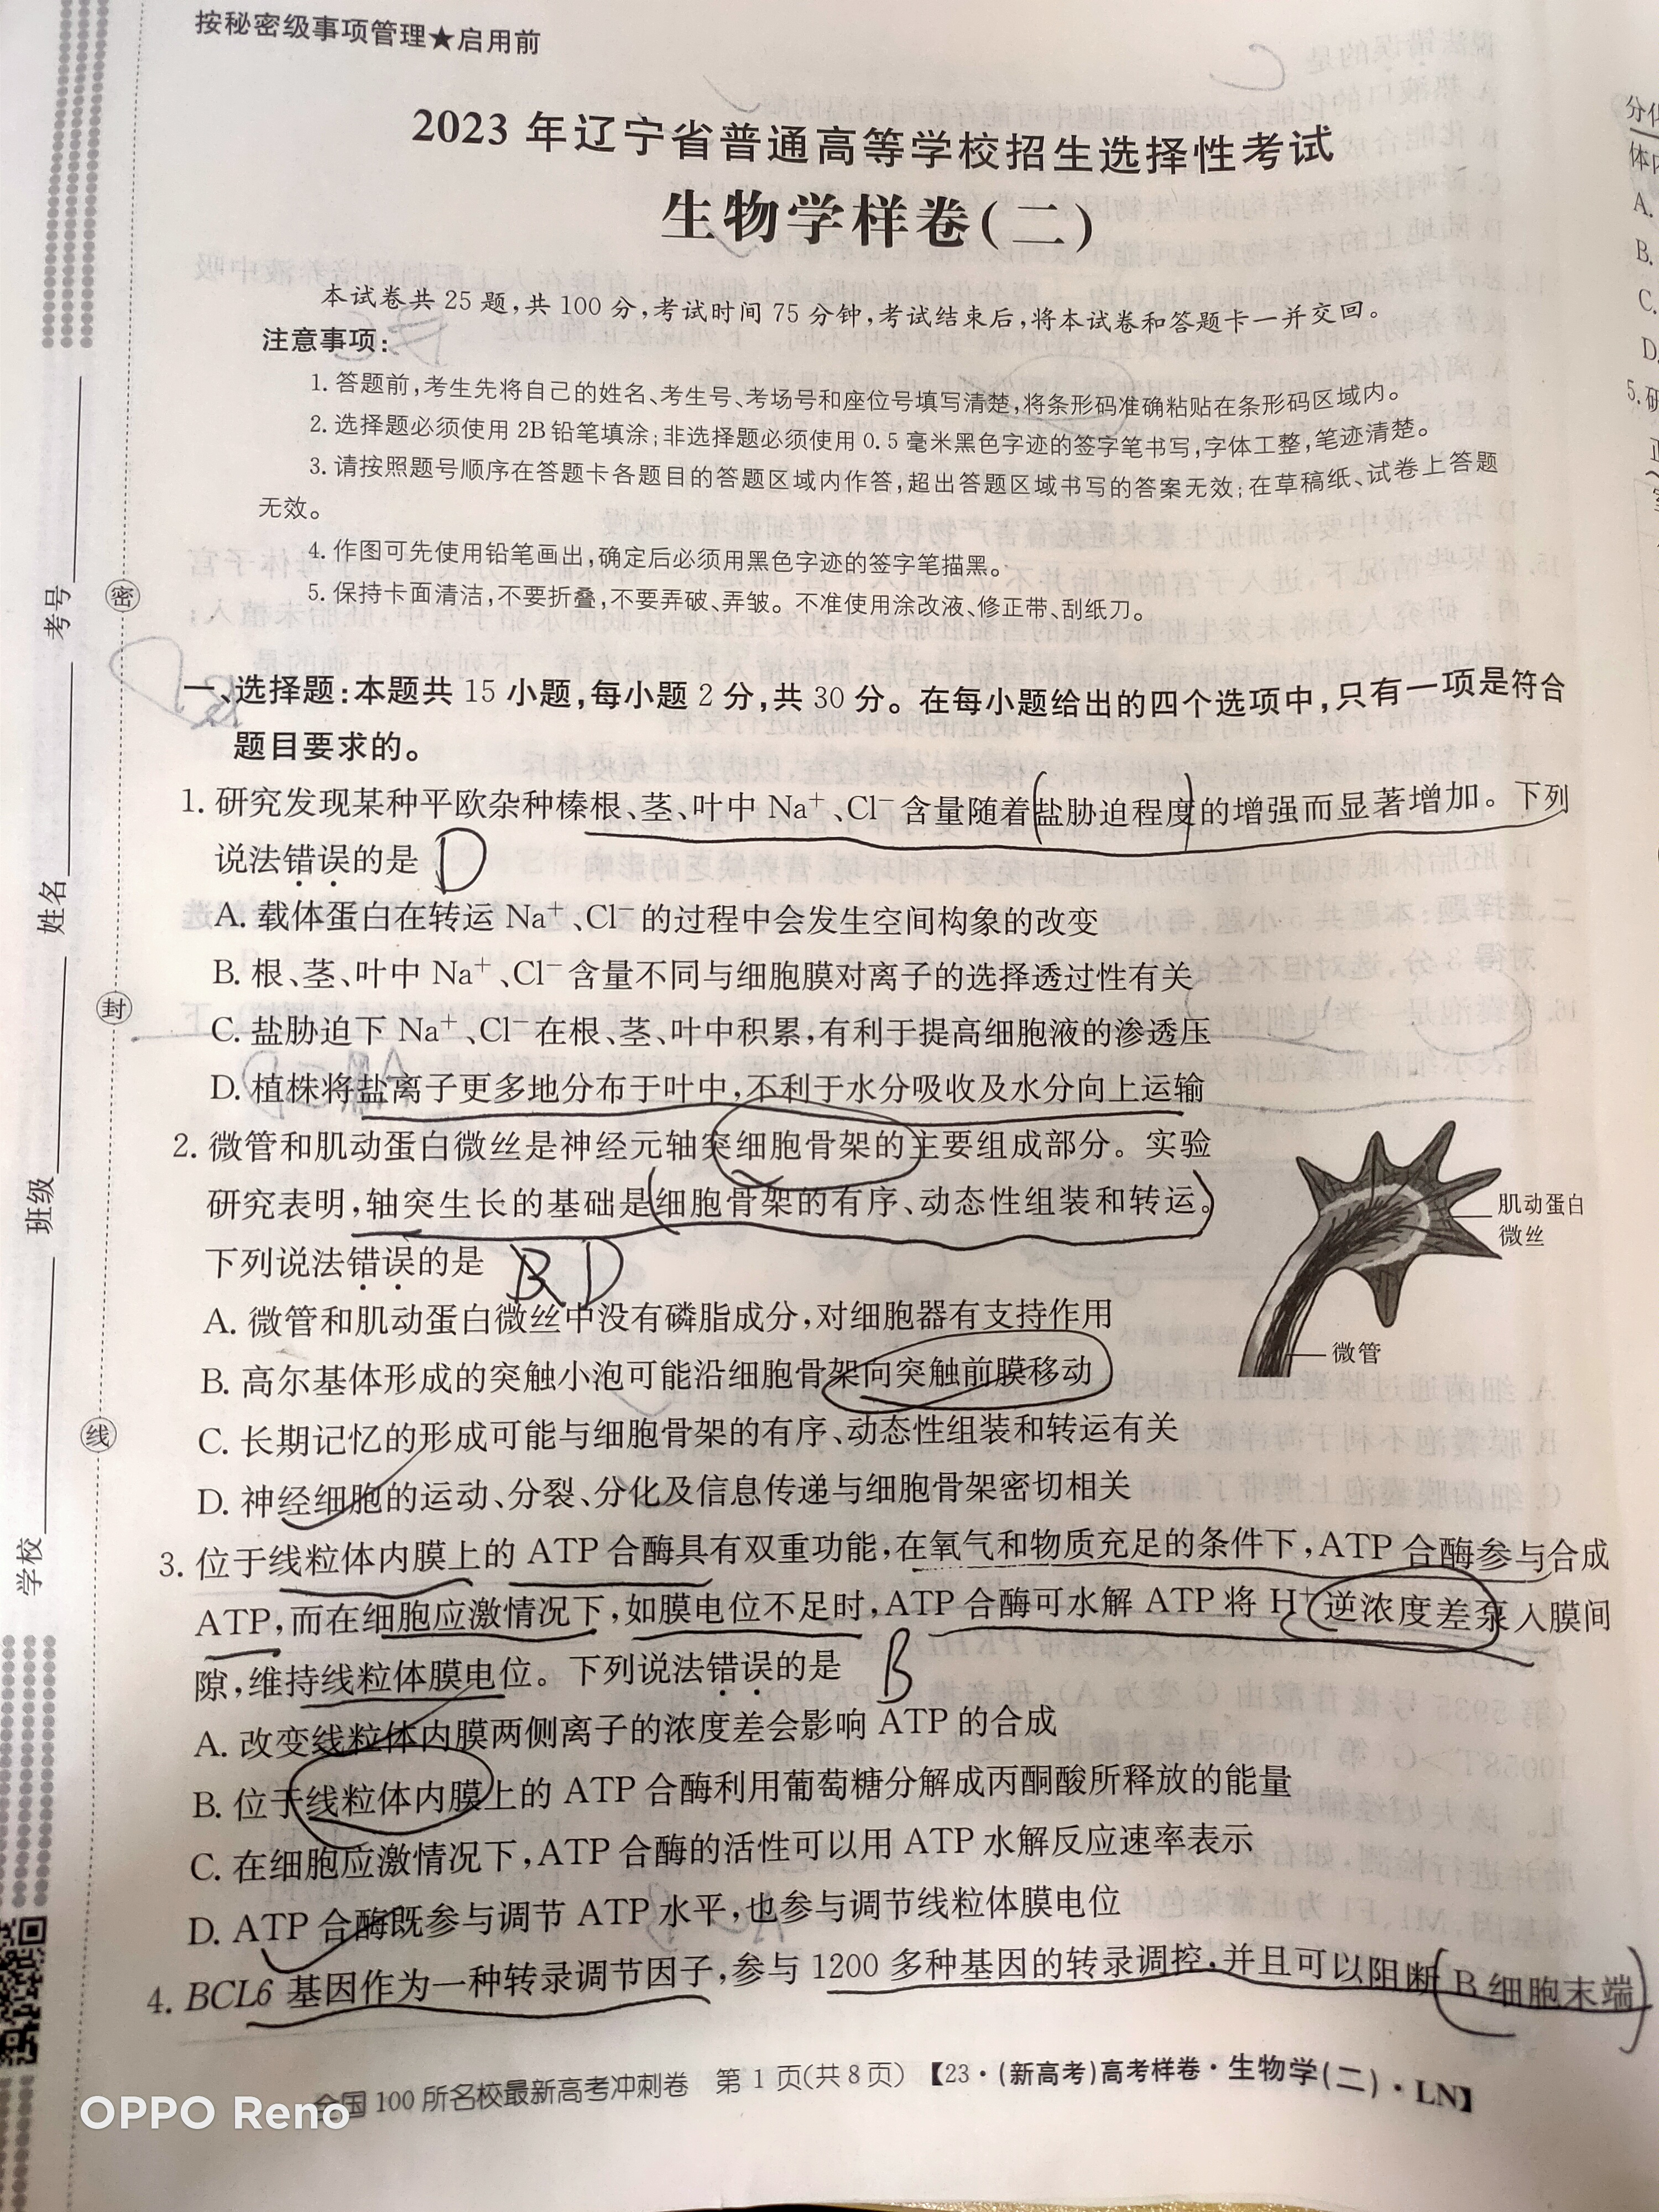 按秘密级事项管理★启用前
2023 年辽宁省普通高等学校招生选择性考试
生物学样卷(二)
本试卷共 25 题,共 100 分,考试时间 75 分钟,考试结束后,将本试卷和答题卡一并交回。
注意事项:
1. 答题前,考生先将自己的姓名、考生号、考场号和座位号填写清楚,将条形码准确粘贴在条形码区域内。
2. 选择题必须使用 2B 铅笔填涂;非选择题必须使用 0.5 毫米黑色字迹的签字笔书写,字体工整,笔迹清楚。
3. 请按照题号顺序在答题卡各题目的答题区域内作答,超出答题区域书写的答案无效;在草稿纸、试卷上答题
无效。
4. 作图可先使用铅笔画出,确定后必须用黑色字迹的签字笔描黑。
5. 保持卡面清洁,不要折叠,不要弄破、弄皱。不准使用涂改液、修正带、刮纸刀。
一、选择题:本题共 15 小题,每小题 2 分,共 30 分。在每小题给出的四个选项中,只有一项是符合
题目要求的。
1. 研究发现某种平欧杂种榛根、茎、叶中 Na⁺、Cl⁻ 含量随着盐胁迫程度的增强而显著增加。下列
说法错误的是 D
A. 载体蛋白在转运 Na⁺、Cl⁻ 的过程中会发生空间构象的改变
B. 根、茎、叶中 Na⁺、Cl⁻ 含量不同与细胞膜对离子的选择透过性有关
C. 盐胁迫下 Na⁺、Cl⁻ 在根、茎、叶中积累,有利于提高细胞液的渗透压
D. 植株将盐离子更多地分布于叶中,不利于水分吸收及水分向上运输
2. 微管和肌动蛋白微丝是神经元轴突细胞骨架的主要组成部分。实验
研究表明,轴突生长的基础是细胞骨架的有序、动态性组装和转运。
下列说法错误的是 B D
A. 微管和肌动蛋白微丝中没有磷脂成分,对细胞器有支持作用
B. 高尔基体形成的突触小泡可能沿细胞骨架向突触前膜移动
C. 长期记忆的形成可能与细胞骨架的有序、动态性组装和转运有关
D. 神经细胞的运动、分裂、分化及信息传递与细胞骨架密切相关
肌动蛋白
微丝
微管
3. 位于线粒体内膜上的 ATP 合酶具有双重功能,在氧气和物质充足的条件下,ATP 合酶参与合成
ATP,而在细胞应激情况下,如膜电位不足时,ATP 合酶可水解 ATP 将 H⁺ 逆浓度差泵入膜间
隙,维持线粒体膜电位。下列说法错误的是 B
A. 改变线粒体内膜两侧离子的浓度差会影响 ATP 的合成
B. 位于线粒体内膜上的 ATP 合酶利用葡萄糖分解成丙酮酸所释放的能量
C. 在细胞应激情况下,ATP 合酶的活性可以用 ATP 水解反应速率表示
D. ATP 合酶既参与调节 ATP 水平,也参与调节线粒体膜电位
4. BCL6 基因作为一种转录调节因子,参与 1200 多种基因的转录调控,并且可以阻断 B 细胞末端
全国 100 所名校最新高考冲刺卷 第 1 页(共 8 页) 【23·(新高考)高考样卷·生物学(二)·LN】
考号
姓名
班级
学校
密
封
线
A.
B.
C.
D.
5.
OPPO Reno